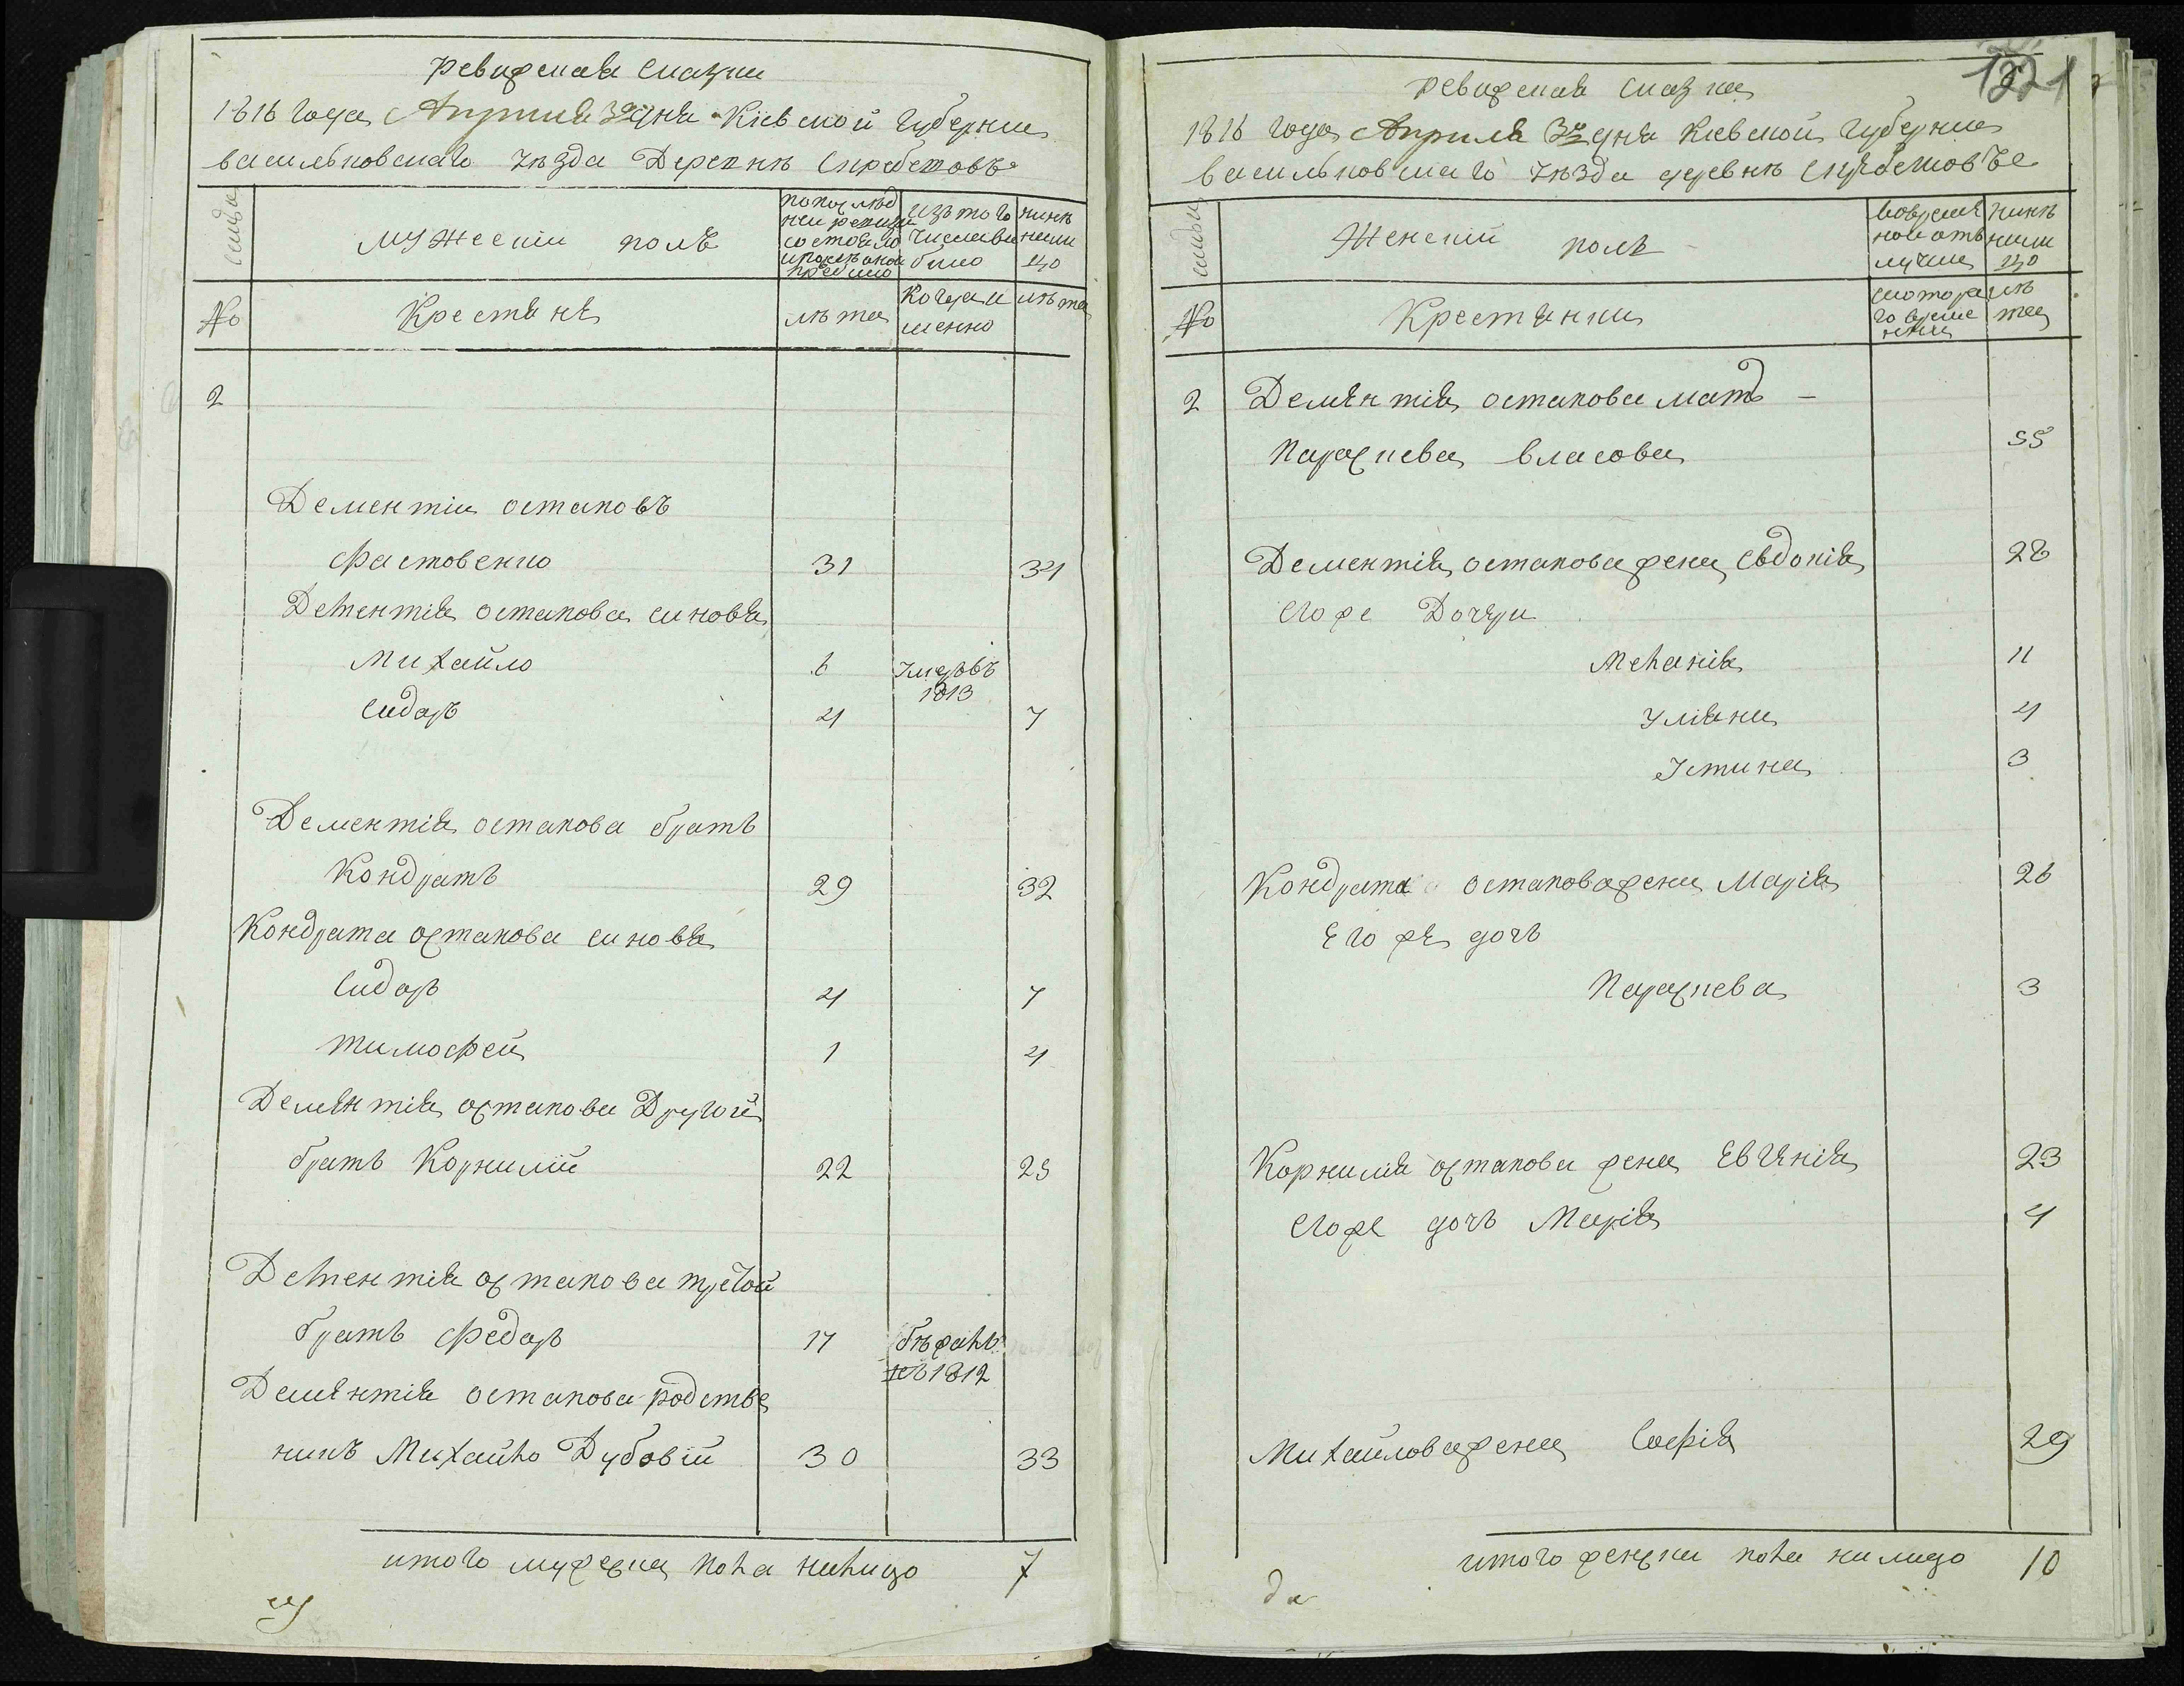 Ревизская Сказки
1816 года Априля 3го дня Кіевской Губерніи
васильковскаго уѣзда Деревнѣ
семьи
мужескій полъ
по послѣд
ней ревизіи
состояло
изъ того
числа вы
было
нинѣ
нали
цо
№
Крестяне
лѣта
когда и
менно
лѣта
2
Дементій остаповъ
фастовенко 31 34
Дементія остапова синовя
Михайло 6 умеръвъ
1813
Сидоръ 4 7
Дементія остапова братъ
Кондратъ 29 32
Кондрата остапова синовя
Сидоръ 4 7
тимофей 1 4
Демянтія остапова Другой
братъ Корнилій 22 25
Дементія остапова третой
братъ федоръ 17 бѣжалъ
въ 1812
Демянтія остапова родстве
никъ Михайло Дубовій 30 33
итого мужеска пола налицо 7
ревизская сказка
1816 года Априля 3го дня Кіевской Губерніи
васильковскаго уѣзда деревнѣ
семьи
Женскій полъ
вовремен
ной отъ
лучки
нинѣ
нали
цо
№
Крестянки
скотора
го време
нни
лѣ
та
2 Демянтія остапова матъ –
Параскева власова 55
Дементія остапова жена Евдокія 28
Егоже Дочери
Меланія 11
Уліяна 4
Устина 3
Кондрата остапова жена Марія 26
Его же дочъ
Параскева 3
Корнилія остапова жена Евгенія 23
Егоже дочъ Марія 4
Михайлова жена Софія 29
итого женска пола налицо 10
да